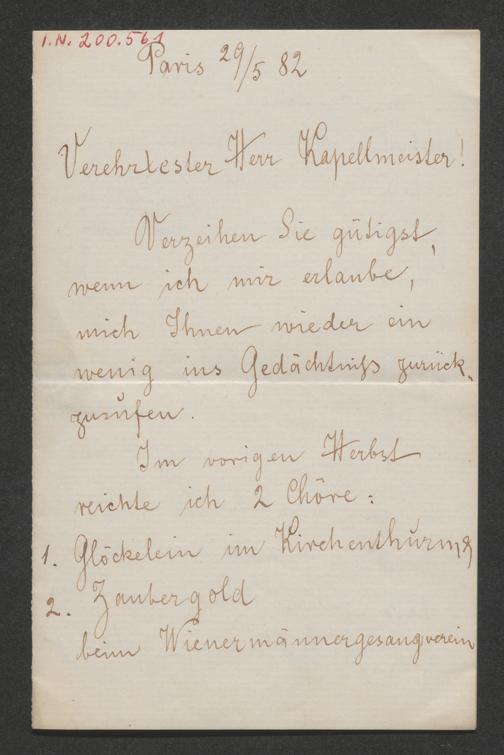 I.N. 200.561
Paris 29/5 82
Verehrtester Herr Kapellmeister!
Verzeihen Sie gütigst,
wenn ich mir erlaube,
mich Ihnen wieder ein
wenig ins Gedächtniß zurück-
zurufen.
Im vorigen Herbst
reichte ich 2 Chöre:
1. Glöckelein im Kirchenthurm &
2. Zaubergold
beim Wienermännergesangverein